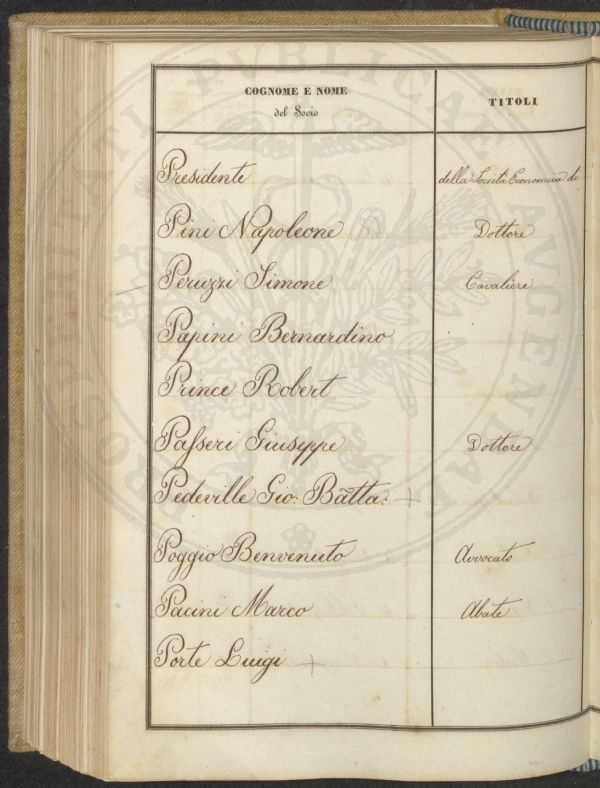 COGNOME E NOME
del Socio
TITOLI
Presidente della Società Economica di
Pini Napoleone Dottore
Peruzzi Simone Cavaliere
Papini Bernardino
Prince Robert
Paſseri Giuseppe Dottore
Pedeville Gio: Batta:
Poggio Benvenuto Avvocato
Pacini Marco Abate
Porte Luigi
PROSPERITATI PUBLICAE AVGENDAE